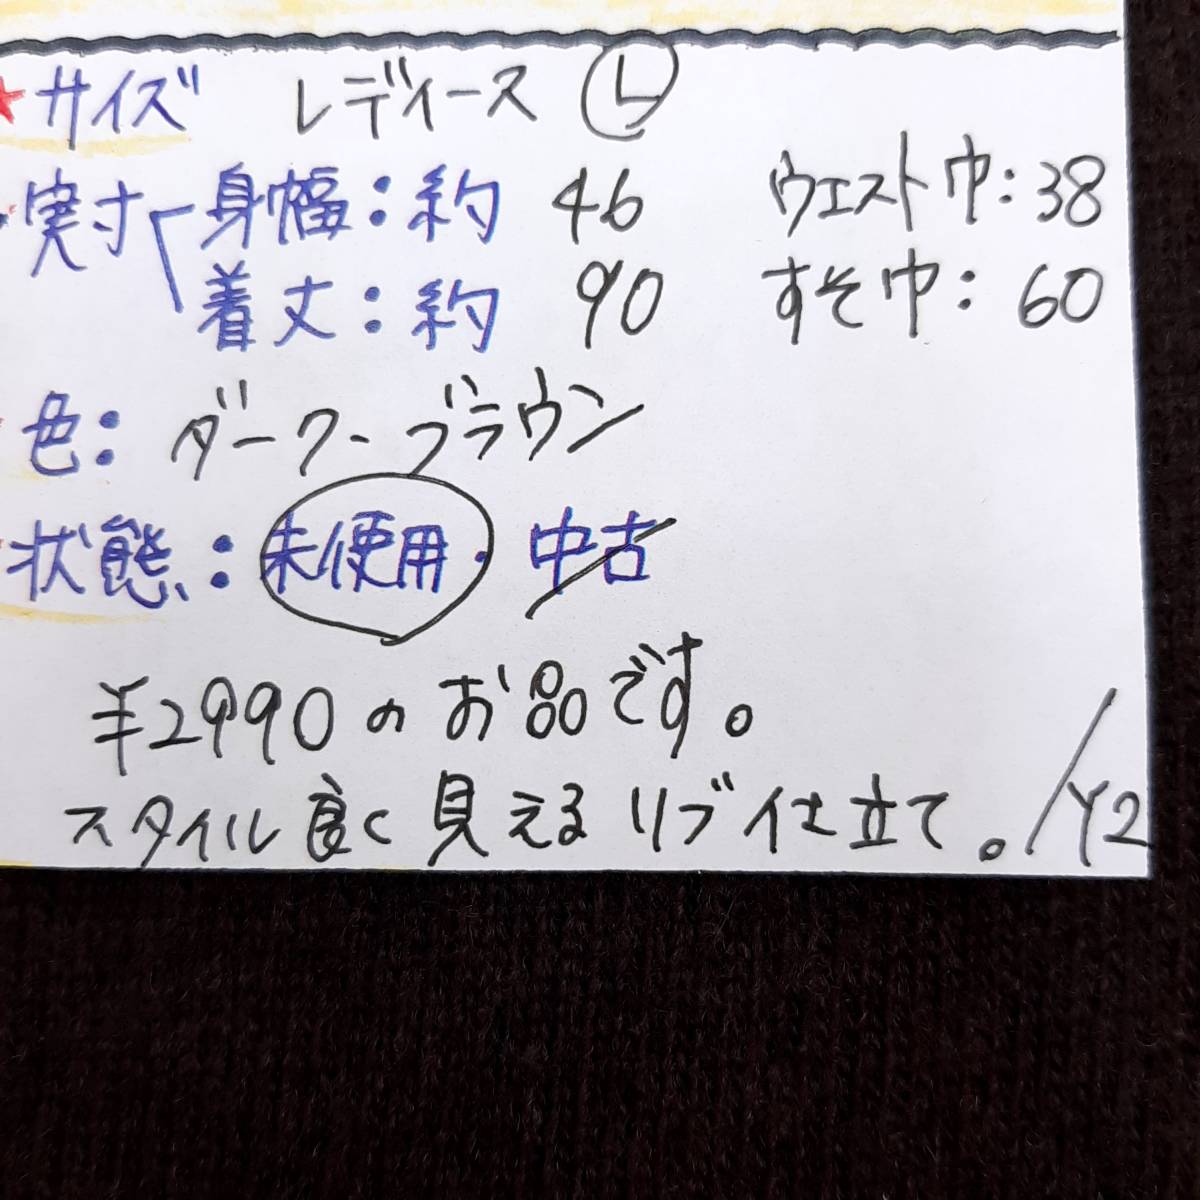 ★サイズ レディース Ⓛ
実寸 身幅：約 46 ウエスト巾：38
着丈：約 90 すそ巾：60
色：ダークブラウン
状態：未使用・中古
¥2990のお品です。
スタイル良く見えるリブ仕立て。/Y2